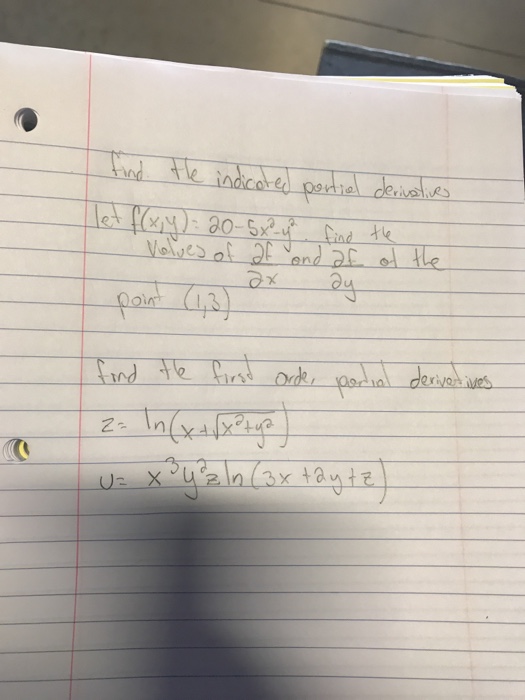 find the indicated partial derivatives
let f(x,y) = 20-5x²-y². find the
values of ∂f/∂x and ∂f/∂y at the
point (1,3)
find the first order partial derivatives
z= ln(x+√x²+y²)
u= x³y²z ln(3x+2y+z)